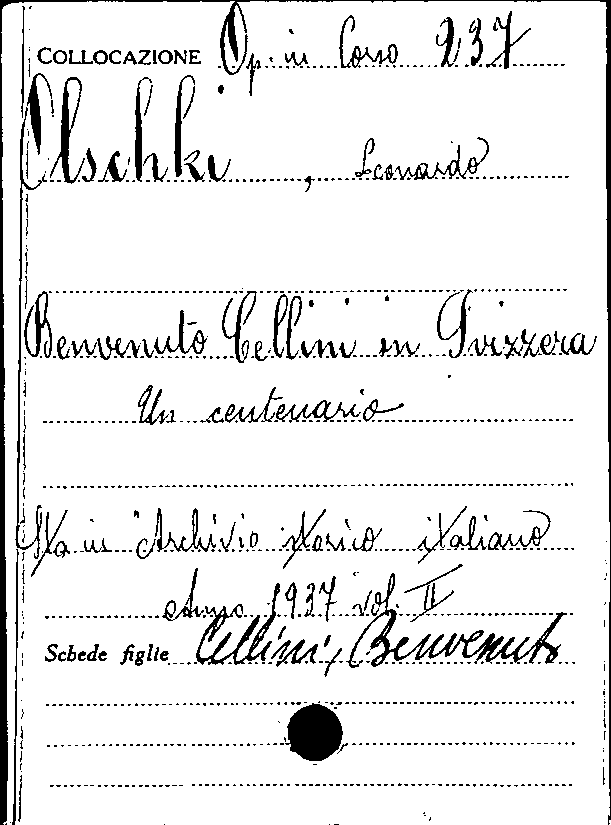 COLLOCAZIONE Op. in Corso 237
Olschki, Leonardo
Benvenuto Cellini in Svizzera
Un centenario
Sta in "Archivio storico italiano
Anno 1937 vol. II
Schede figlie Cellini, Benvenuto